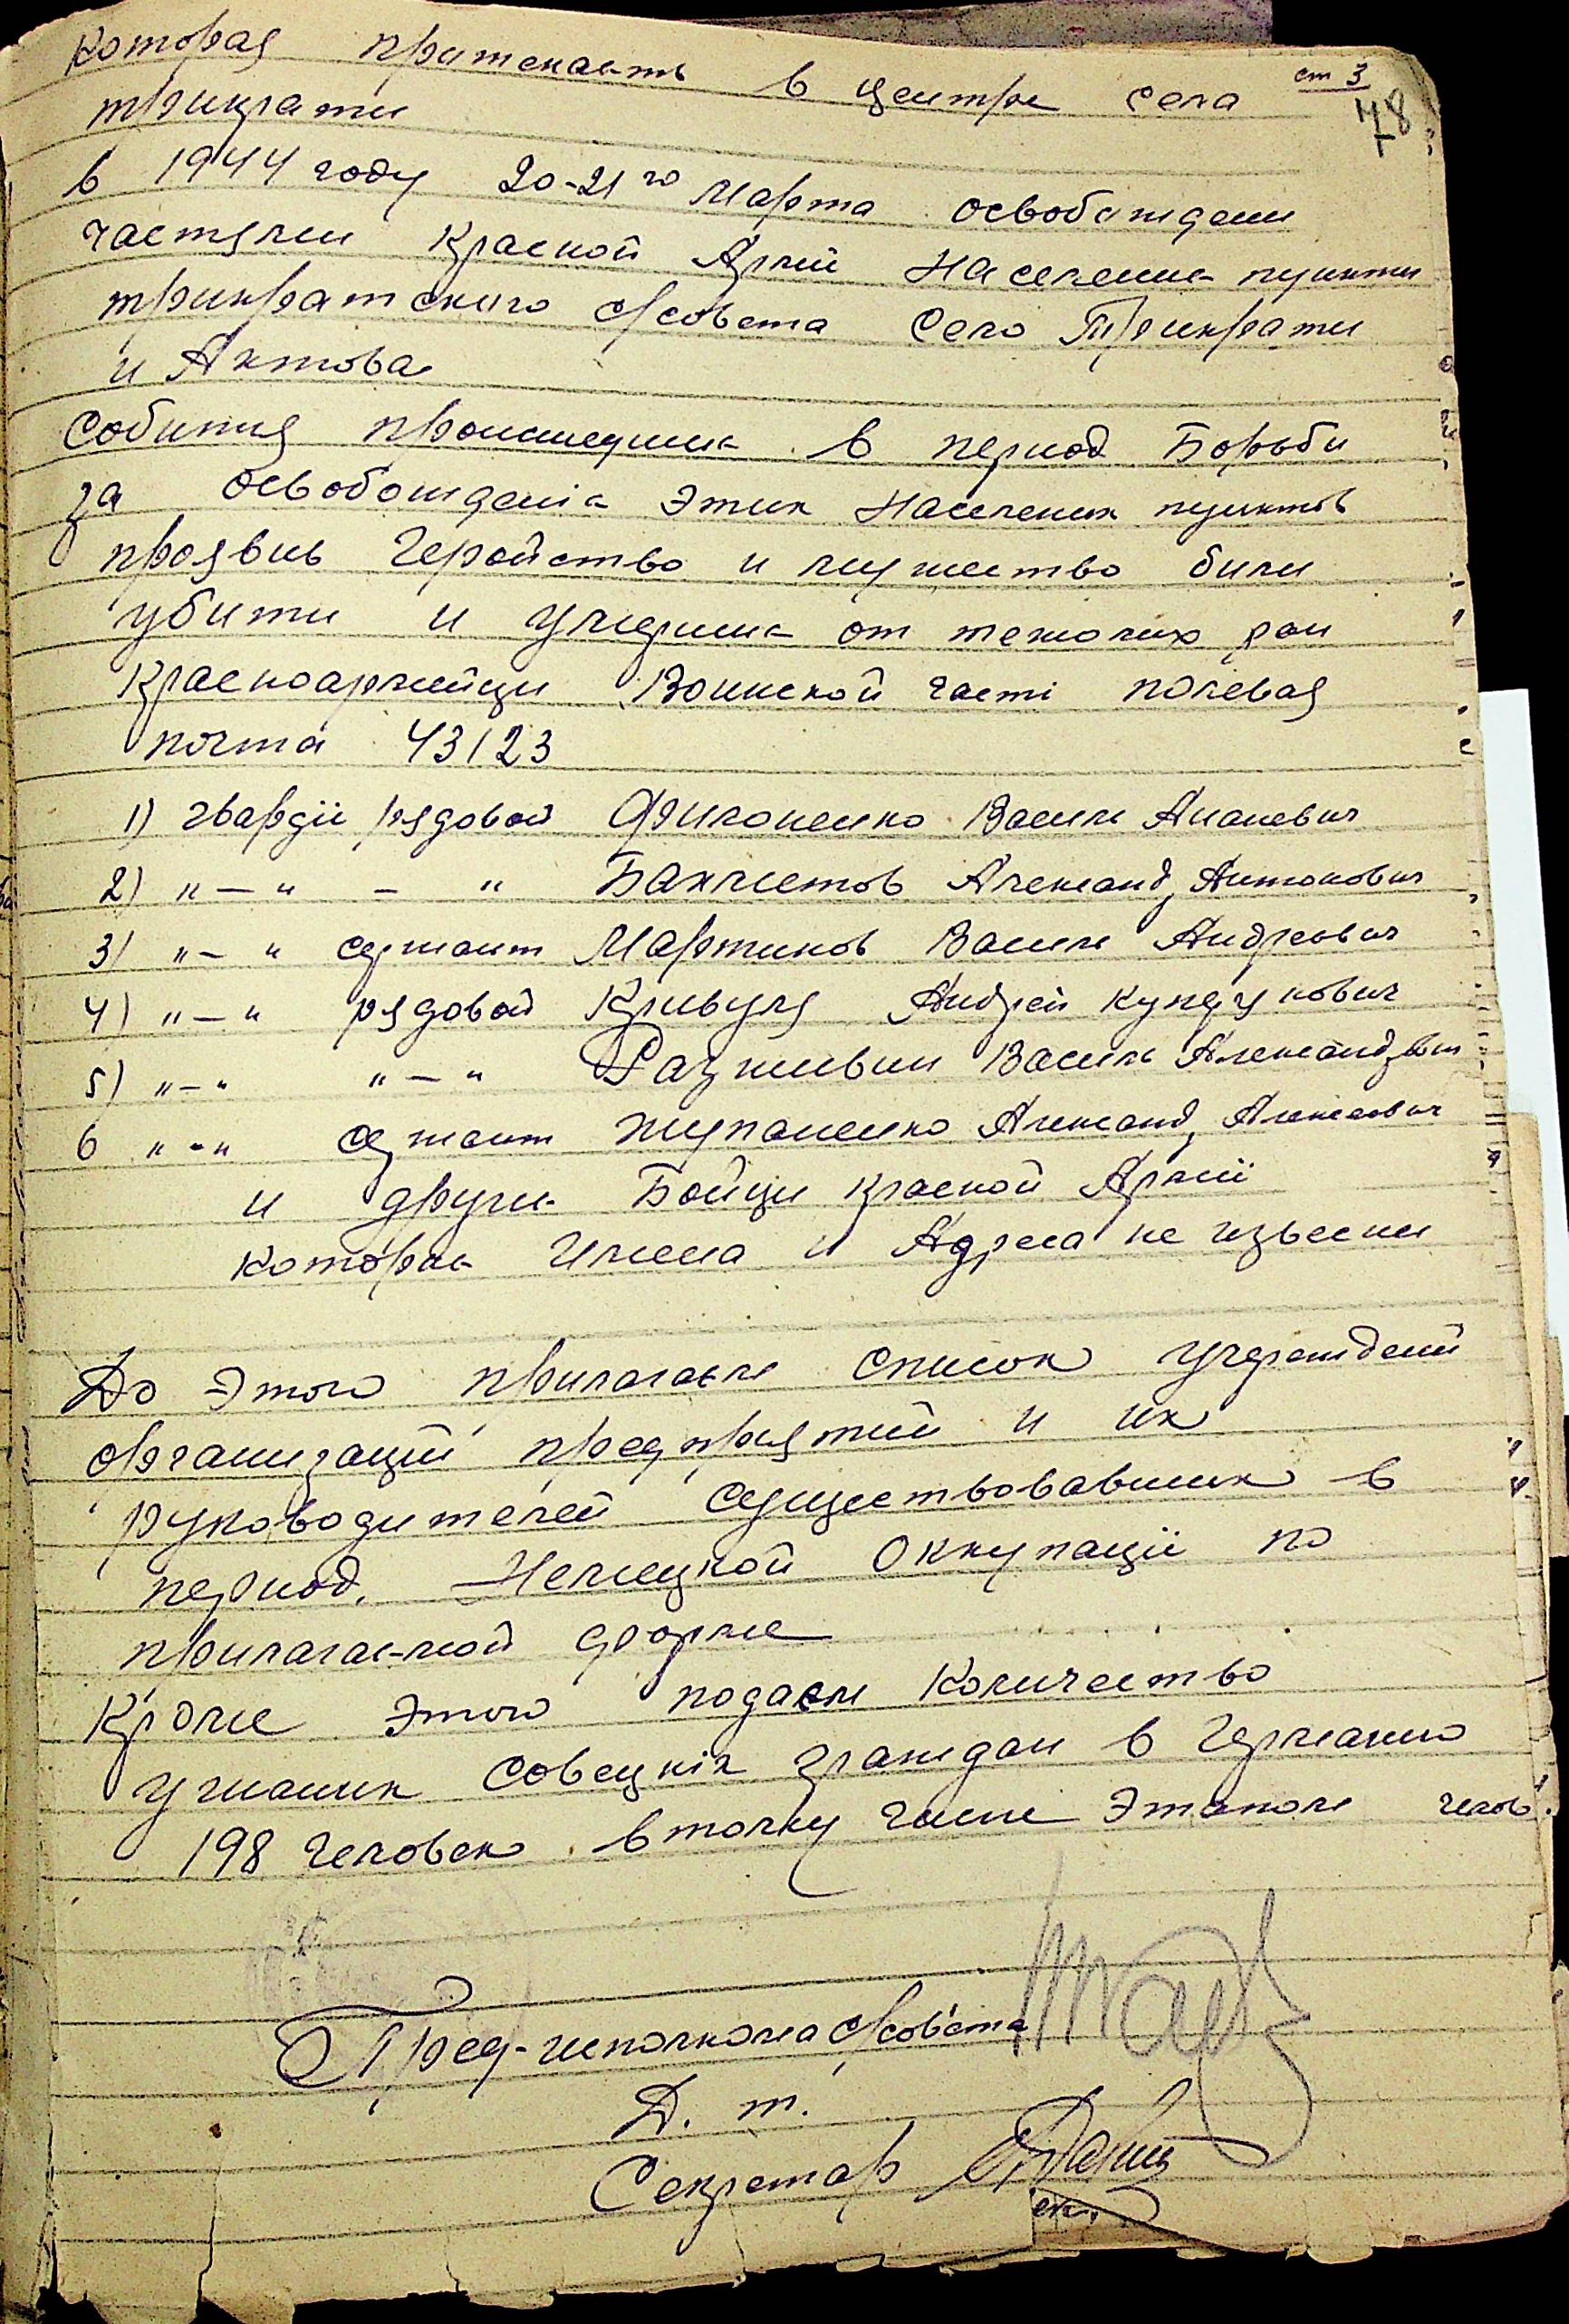 ст 3
78
Которая притекаеть в центре села
трикрати
в 1944 году 20-21го Марта освобождени
частями Красной Армії Население пункти
трикратского с/совета Село Трикрати
и Актова
События происшедшие в период Борьби
за освобожденіе Этих Населених пунктов
проявив Геройство и мужество били
убити и умершие от тяжолих ран
Красноармейци Воинской часті полевая
почта 43123
1) гвардіи рядовой Филоненко Васили Ананевич
2) " — " — " Бахметов Александ Антонович
3) " — " сержант Мартинов Васили Андреевич
4) " — " рядовой Кривуля Андрей
5) " — " " — " Василь Александрович
6 " - " сержант Жупаненко Александ Алексеевич
и други Бойци Красной Армії
которие Имена и Адреса не извесни
До Этого прилагаем список учреждений
организацій предприятий и их
руководителей существовавших в
период. Немецкой Оккупаціи по
прилагаемой форме
Кроме Этого подаем Количество
угнаних Совецкіх граждан в Германию
198 Человек в тому числе Этапом челов.
Пред-исполкома с/совета
Д. т.
Секретар